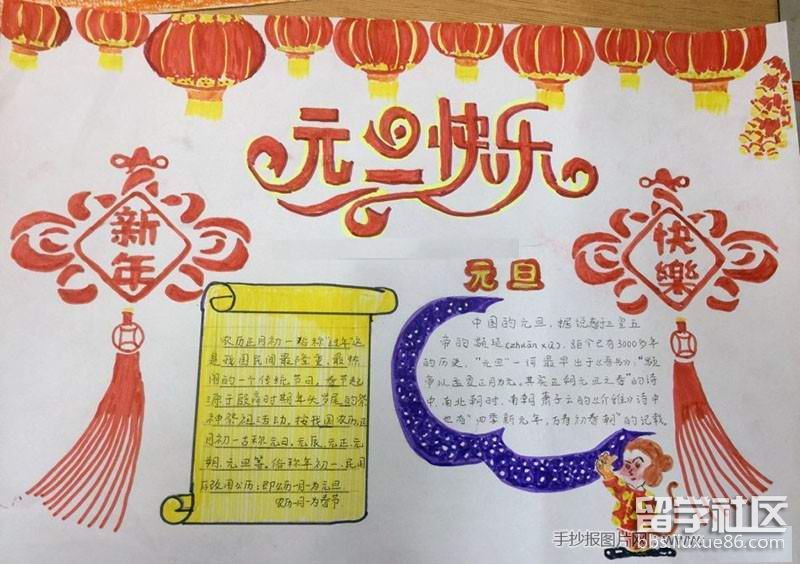 元旦快乐
新年
快樂
元旦
农历正月初一俗称过年,这
是我国民间最隆重、最热
闹的一个传统节日。春节起
源于殷商时期年头岁尾的祭
神祭祖活动。按我国农历,正
月初一古称元日、元辰、元正、元
朔、元旦等,俗称年初一,民国
改用公历:即公历一月一为元旦
农历一月一为春节
中国的元旦,据说 于三皇五
帝的颛顼(zhuān xū),距今已有3000多年
的历史。"元旦"一词最早出于《晋书》,"颛
帝以孟夏正月为元,其实正朔元旦之春"的诗
中。南北朝时,南朝萧子云的《介雅》诗中
也有"四季新元年,万寿初春朝"的记载
手抄报图片网
留学社区
bbs.liuxue86.com